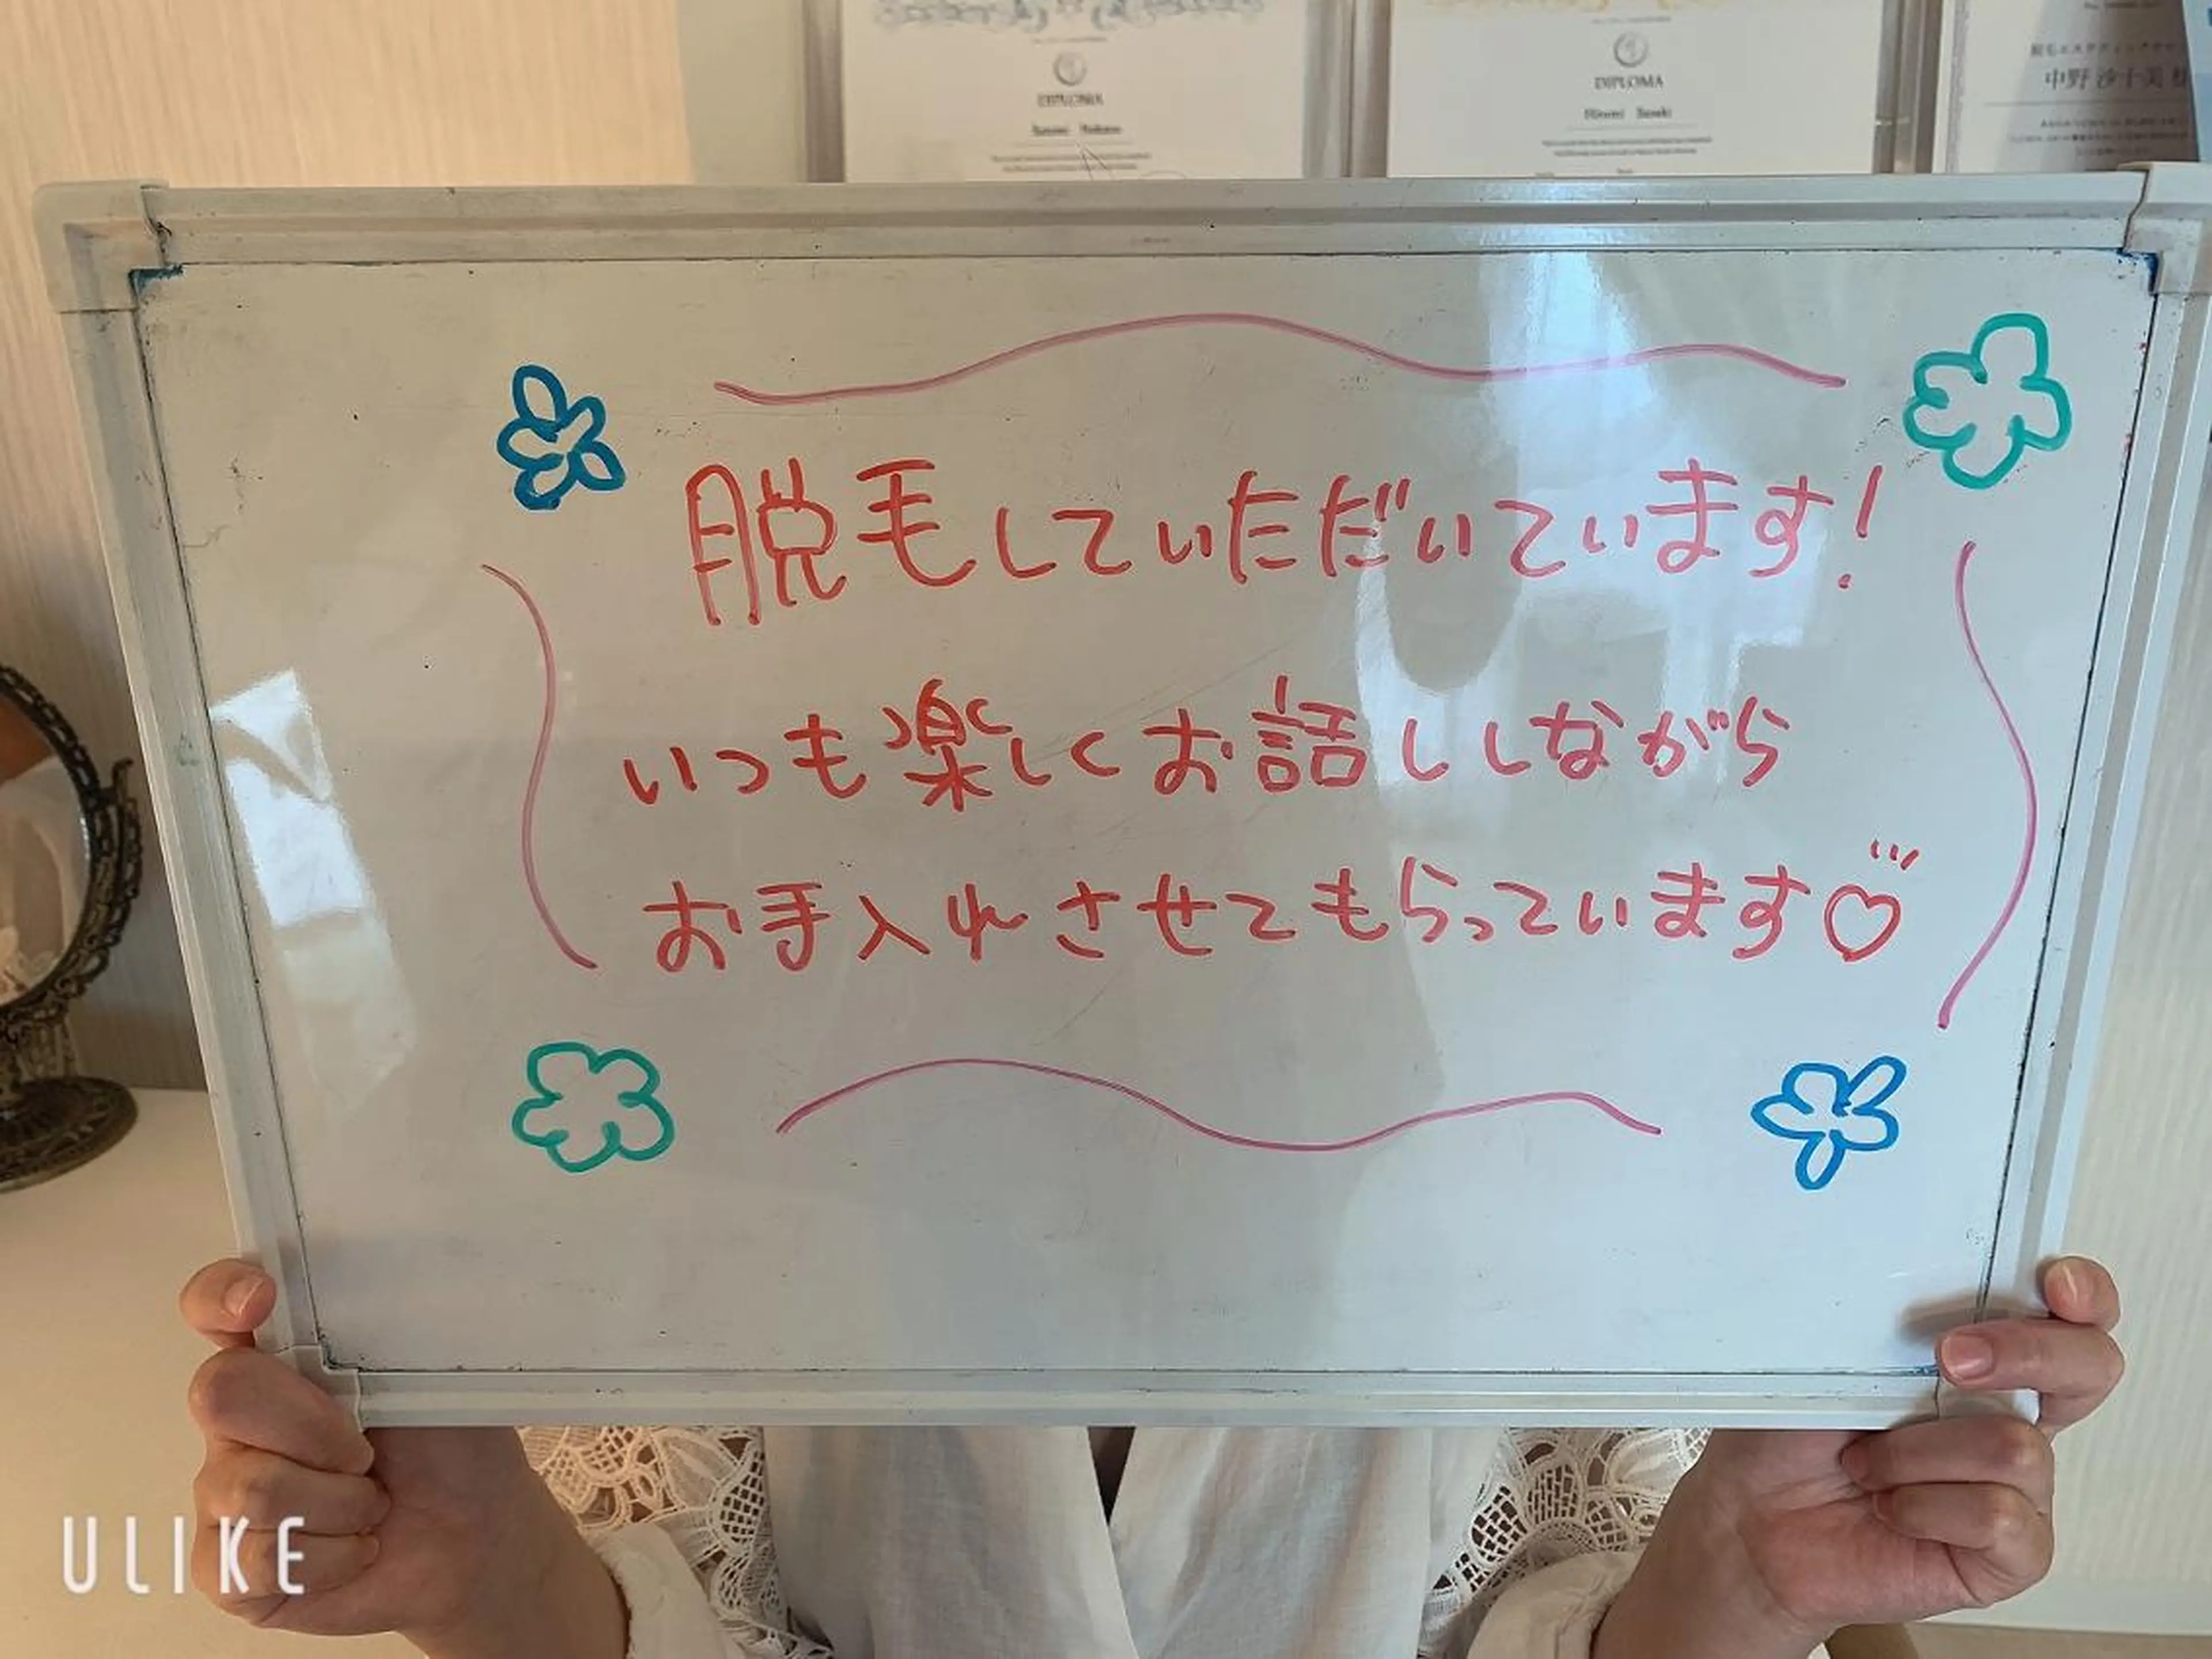 DIPLOMA
DIPLOMA
中野 沙千美 様
脱毛していただいています!
いつも楽しくお話ししながら
お手入れさせてもらっています♡
ULIKE